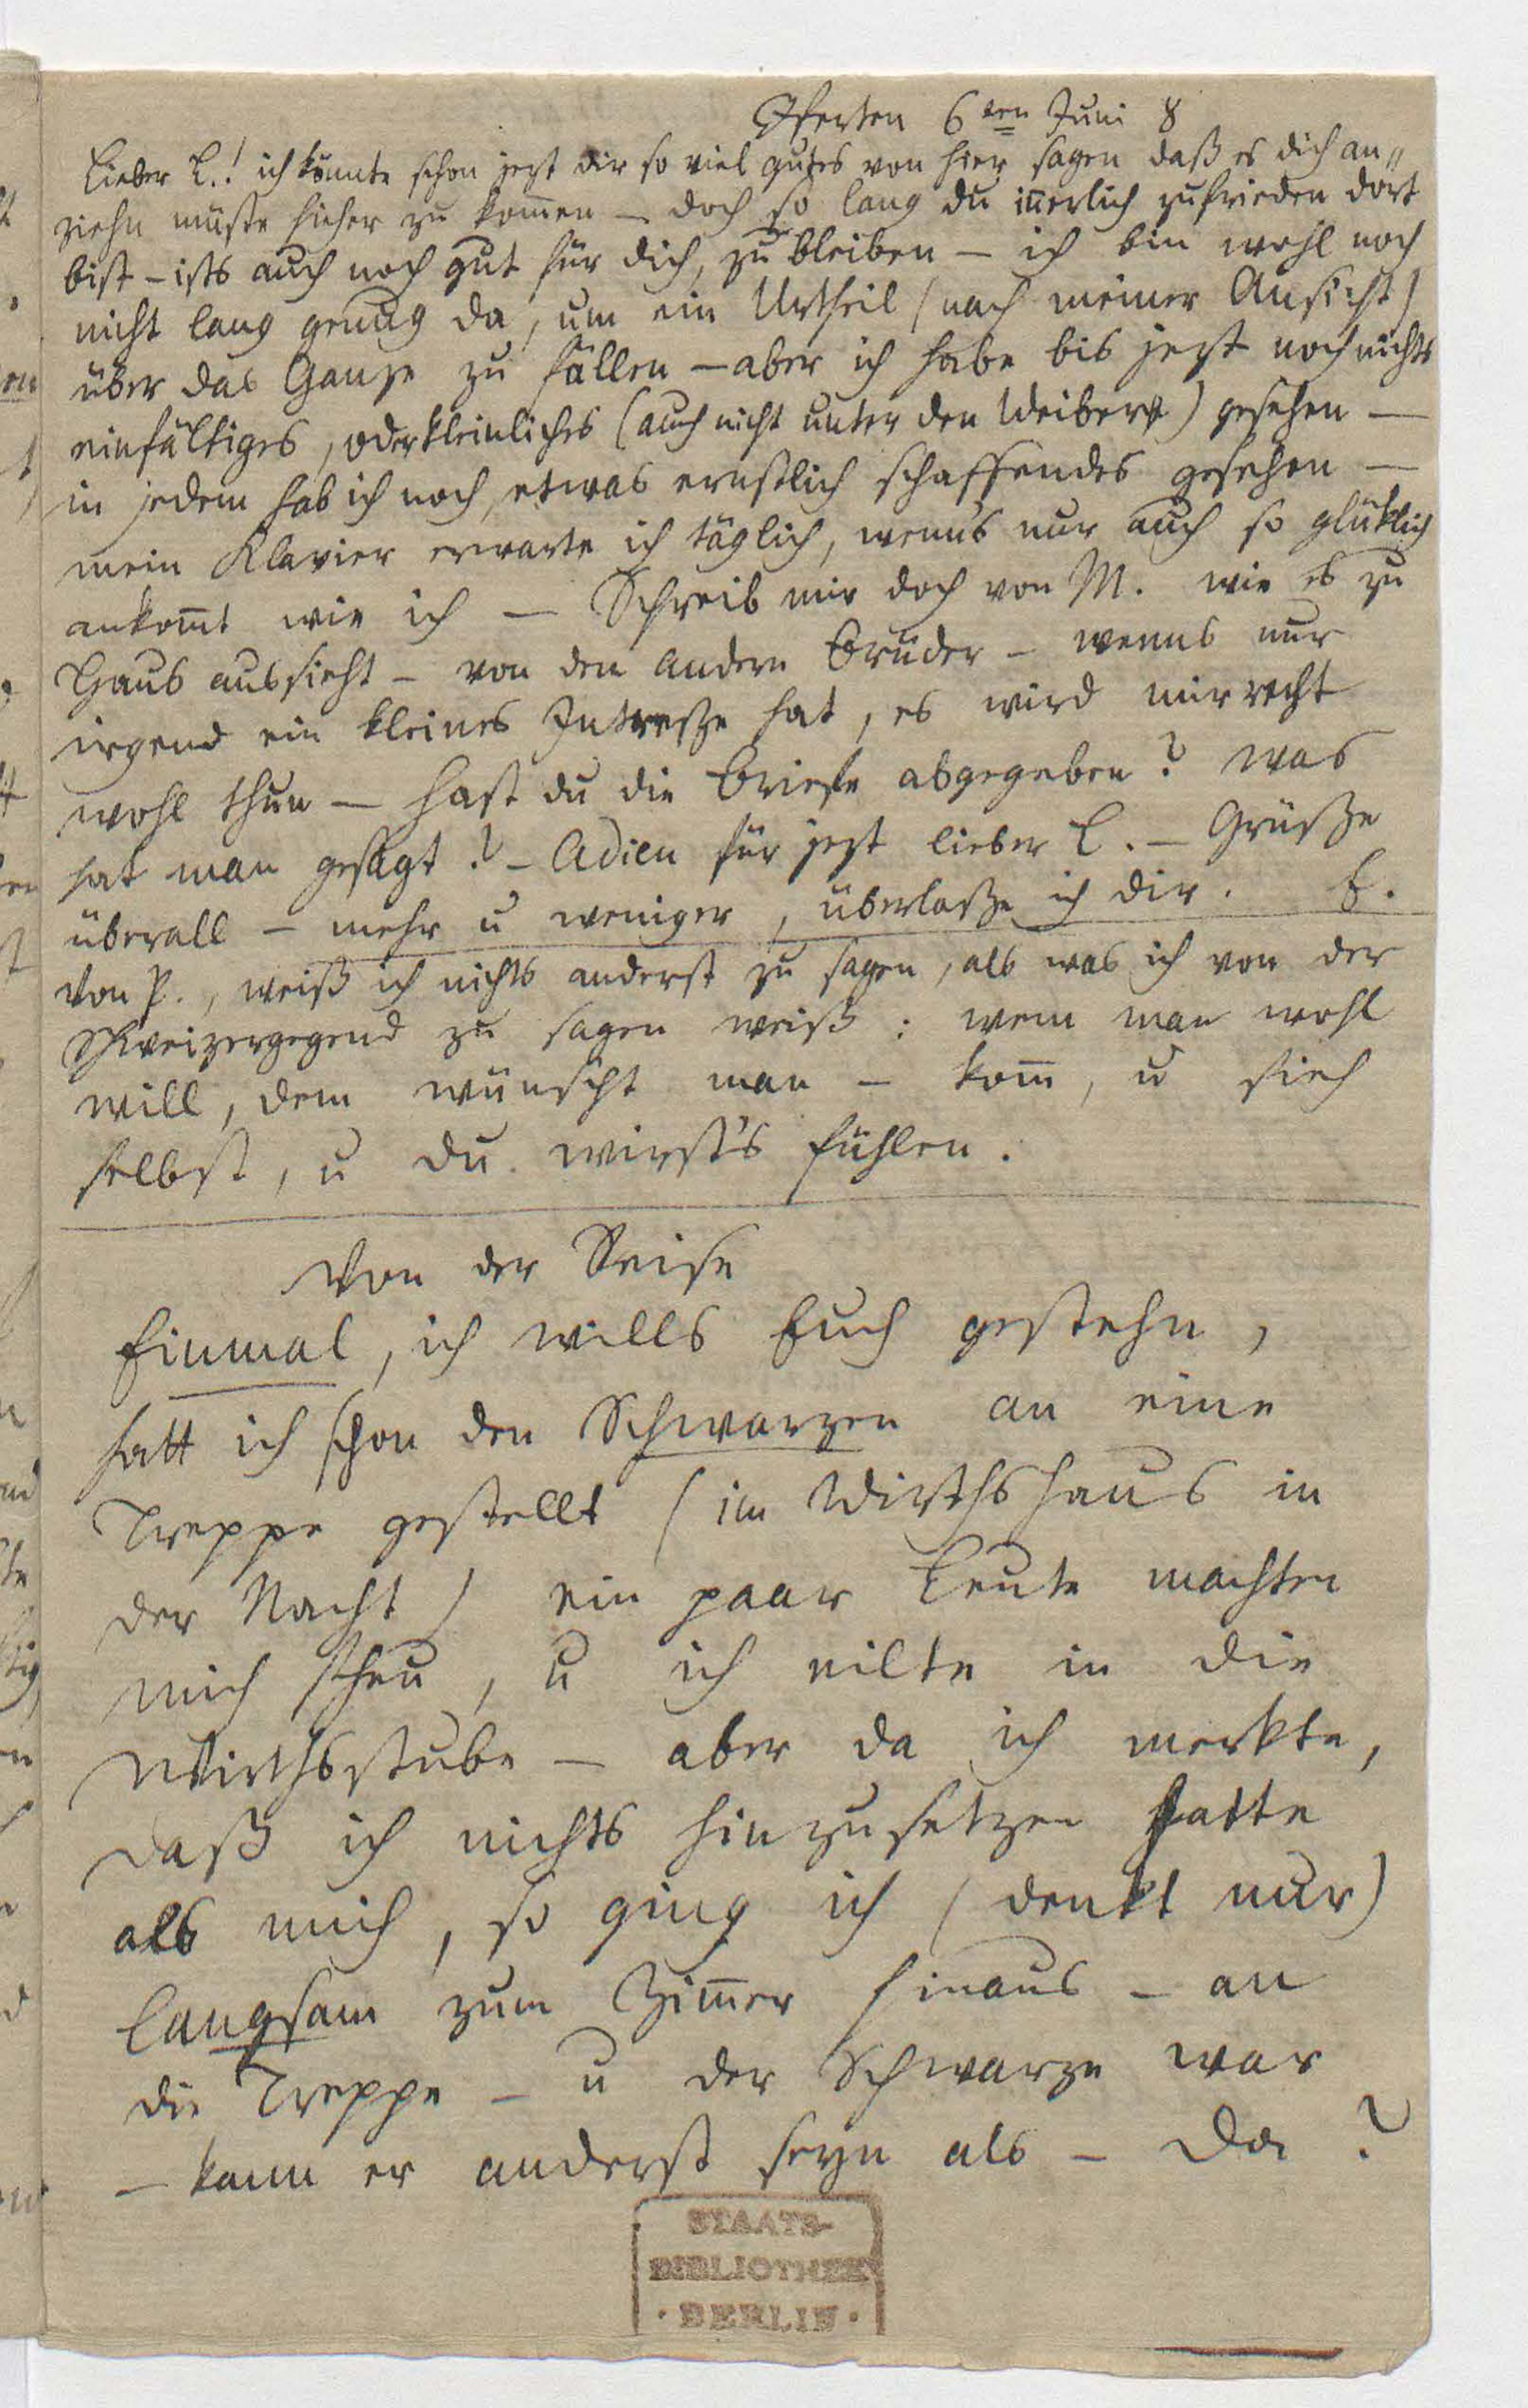 Iferten 6ten Juni 8
Lieber L.! ich könnte schon jezt dir so viel gutes von hier sagen daß es dich an„
ziehn müßte hieher zu kom̄en – doch so lang du in̄erlich zufrieden dort
bist – ists auch noch gut für dich, zu bleiben – ich bin wohl noch
nicht lang genug da, um ein Urtheil (nach meiner Ansicht)
über das Ganze zu fällen – aber ich habe bis jezt noch nichts
einfältiges, oder kleinliches (auch nicht unter den Weibern) gesehen –
in jedem hab ich noch, etwas ernstlich schaffendes gesehen –
mein Klavier erwarte ich täglich, wenn's nur auch so glüklich
ankom̄t wie ich – Schreib mir doch von M. wie es zu
Haus aussieht – von den andern Brüder – wenns nur
irgend ein kleines Intresse hat, es wird mir recht
wohl thun – hast du die Briefe abgegeben? was
hat man gesagt? – Adieu für jezt lieber L. – Grüße
überall – mehr u weniger, überlaße ich dir. B.
Von P., weiß ich nichts anderst zu sagen, als was ich von der
Schweizergegend zu sagen weiß: wem man wohl
will, dem wünscht man – kom̄, u sieh
selbst, u du wirst's fühlen.
Von der Reise
Einmal, ich wills Euch gestehn,
hatt ich schon den Schwarzen an eine
Treppe gestellt (im Wirthshaus in
der Nacht) ein paar Leute machten
mich scheu, u ich eilte in die
Wirthsstube – aber da ich merkte,
daß ich nichts hinzusetzen hatte
als mich, so ging ich (denkt nur)
langsam zum Zim̄er hinaus – an
die Treppe – u der Schwarze war
– kann er anderst seyn als – da?
STAATS-
BIBLIOTHEK
· BERLIN ·